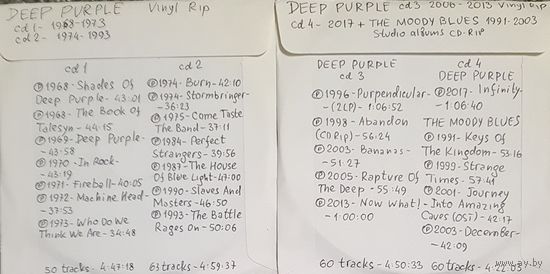 DEEP PURPLE Vinyl Rip
cd 1 - 1968-1973
cd 2 - 1974-1993
cd 1
Ⓟ1968 - Shades Of
Deep Purple - 43:01
Ⓟ1968 - The Book Of
Talesyn - 44:15
Ⓟ1969 - Deep Purple -
- 43:58
Ⓟ1970 - In Rock -
- 43:19
Ⓟ1971 - Fireball - 40:05
Ⓟ1972 - Machine Head -
- 37:53
Ⓟ1973 - Who Do We
Think We Are - 34:48
50 tracks - 4:47:18
cd 2
Ⓟ1974 - Burn - 42:10
Ⓟ1974 - Stormbringer -
- 36:23
Ⓟ1975 - Come Taste
The Band - 37:11
Ⓟ1984 - Perfect
Strangers - 39:56
Ⓟ1987 - The House
Of Blue Light - 47:00
Ⓟ1990 - Slaves And
Masters - 46:50
Ⓟ1993 - The Battle
Rages On - 50:06
63 tracks - 4:59:37
DEEP PURPLE cd 3 2006 - 2013 Vinyl Rip
cd 4 - 2017 + THE MOODY BLUES 1991-2003
Studio albums CD-RIP
DEEP PURPLE
cd 3
Ⓟ1996 - Purpendicular -
- (2LP) - 1:06:52
Ⓟ1998 - Abandon
(CD Rip) - 56:24
Ⓟ2003 - Bananas -
- 51:27
Ⓟ2005 - Rapture Of
The Deep - 55:49
Ⓟ2013 - Now What! -
- 1:00:00
60 tracks - 4:50:33
cd 4
DEEP PURPLE
Ⓟ2017 - Infinity -
- 1:06:40
THE MOODY BLUES
Ⓟ1991 - Keys Of
The Kingdom - 53:16
Ⓟ1999 - Strange
Times - 57:41
Ⓟ2001 - Journey
Into Amazing
Caves (OST) - 42:17
Ⓟ2003 - December -
- 42:09
60 tracks - 4:22:03
www.ay.by